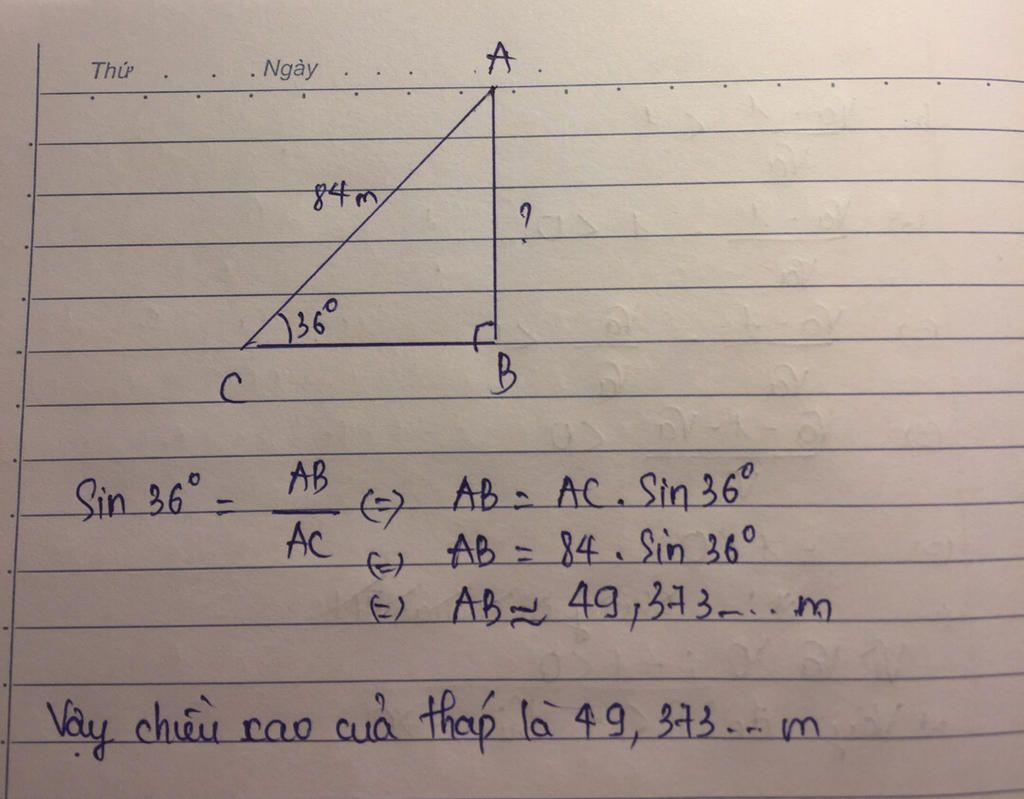 Thứ . . . Ngày . . . . . .
A
84 m
?
36°
C
B
Sin 36° = AB/AC (=) AB = AC . Sin 36°
(=) AB = 84 . Sin 36°
(=) AB ≈ 49,373... m
Vậy chiều cao cuả tháp là 49,373... m